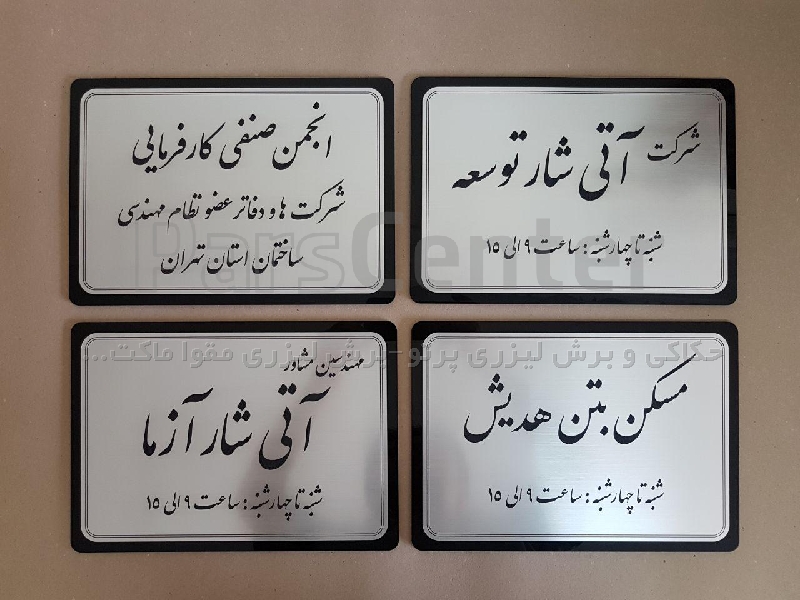 انجمن صنفی کارفرمایی
شرکت ها و دفاتر عضو نظام مهندسی
ساختمان استان تهران
شرکت
آتی شار توسعه
شنبه تا چهارشنبه : ساعت ۹ الی ۱۵
مهندسین مشاور
آتی شار آزما
شنبه تا چهارشنبه : ساعت ۹ الی ۱۵
مسکن بتن هدیش
شنبه تا چهارشنبه : ساعت ۹ الی ۱۵
ParsCenter
حکاکی و برش لیزری پرتو-برش لیزری مقوا ماکت...